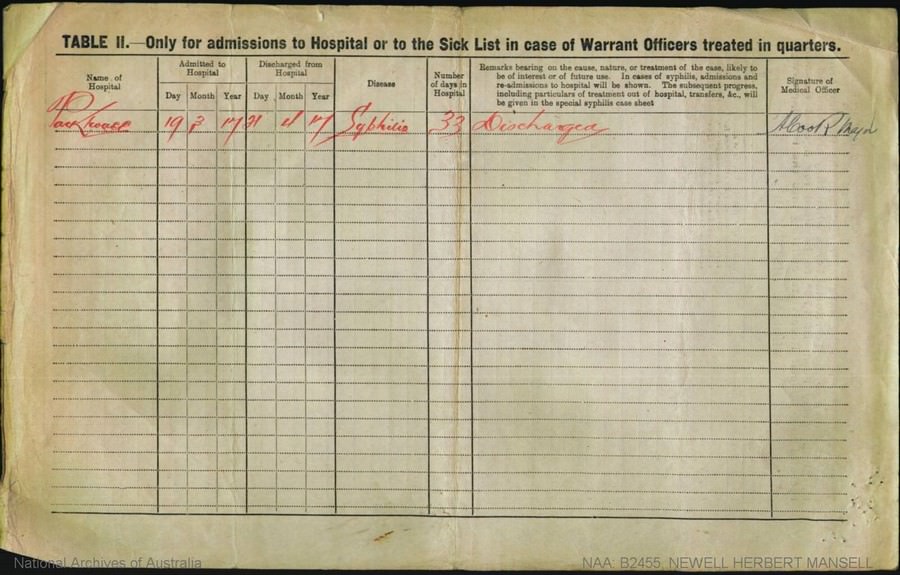 TABLE II.—Only for admissions to Hospital or to the Sick List in case of Warrant Officers treated in quarters.
Name of Hospital
Admitted to Hospital
Day Month Year
Discharged from Hospital
Day Month Year
Disease
Number of days in Hospital
Remarks bearing on the cause, nature, or treatment of the case, likely to
be of interest or of future use. In cases of syphilis, admissions and
re-admissions to hospital will be shown. The subsequent progress,
including particulars of treatment out of hospital, transfers, &c., will
be given in the special syphilis case sheet
Signature of Medical Officer
19 3 17 21 4 17 Syphilis 33 Discharged Major
National Archives of Australia
NAA: B2455, NEWELL HERBERT MANSELL